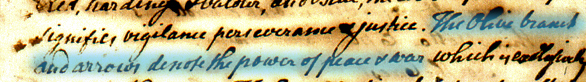 Red, hardiness & valour, and Blue,
signifies vigilance perseverance & justice. The Olive branch
and arrows denote the power of peace & war which is exclusively